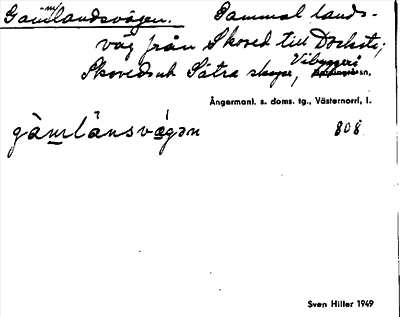 Gammlandsvägen. Gammal lands-
väg från Skoved till Docksta;
Skoveds och Sätra skogar, Vibyggerå
sn,
Ångermanl. s. doms. tg., Västernorrl. l.
gàmlánsvä́gən 808
Sven Hiller 1949